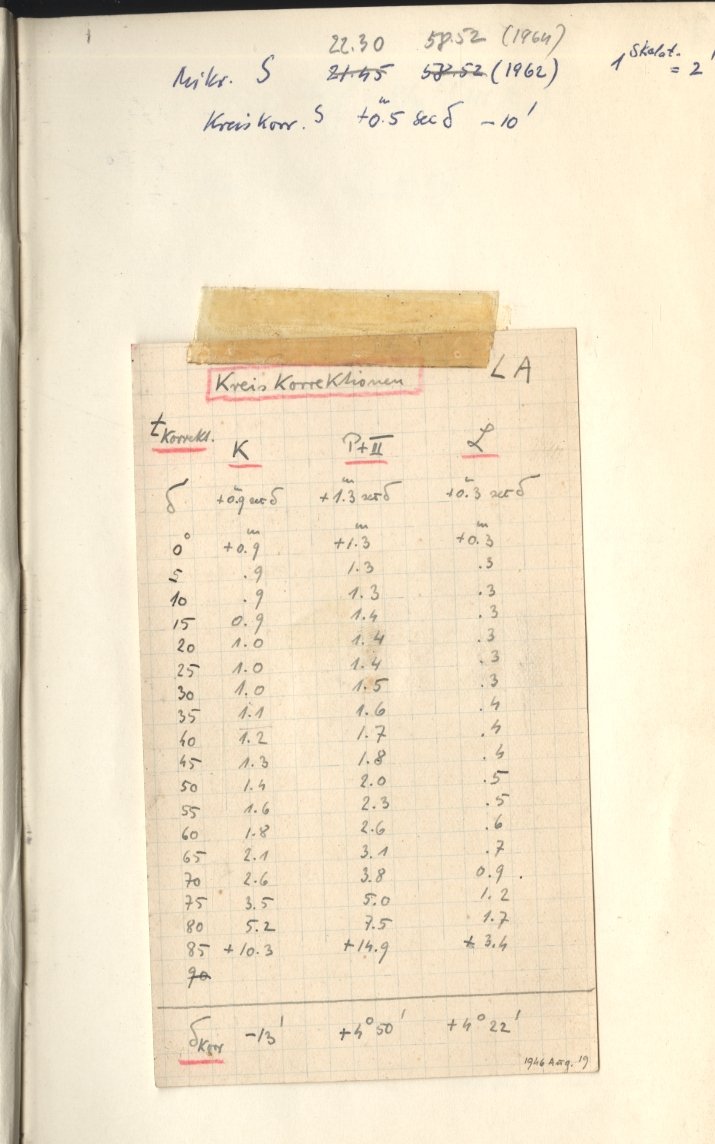 22.30 58.52 (1964)
Mikr. S 21.45 58.52 (1962) 1 Skalat. = 2'
Kreiskorr. S +0.ᵐ5 sec δ -10'
Kreis Korrektionen LA
t Korrekt. K P+II L
δ +0.ᵐ9 sec δ +1.ᵐ3 sec δ +0.ᵐ3 sec δ
0° +0.ᵐ9 +1.ᵐ3 +0.ᵐ3
5 .9 1.3 .3
10 .9 1.3 .3
15 0.9 1.4 .3
20 1.0 1.4 .3
25 1.0 1.4 .3
30 1.0 1.5 .3
35 1.1 1.6 .4
40 1.2 1.7 .4
45 1.3 1.8 .4
50 1.4 2.0 .5
55 1.6 2.3 .5
60 1.8 2.6 .6
65 2.1 3.1 .7
70 2.6 3.8 0.9
75 3.5 5.0 1.2
80 5.2 7.5 1.7
85 +10.3 +14.9 +3.4
90
δ Korr -13' +4° 50' +4° 22'
1946 Aug. 19